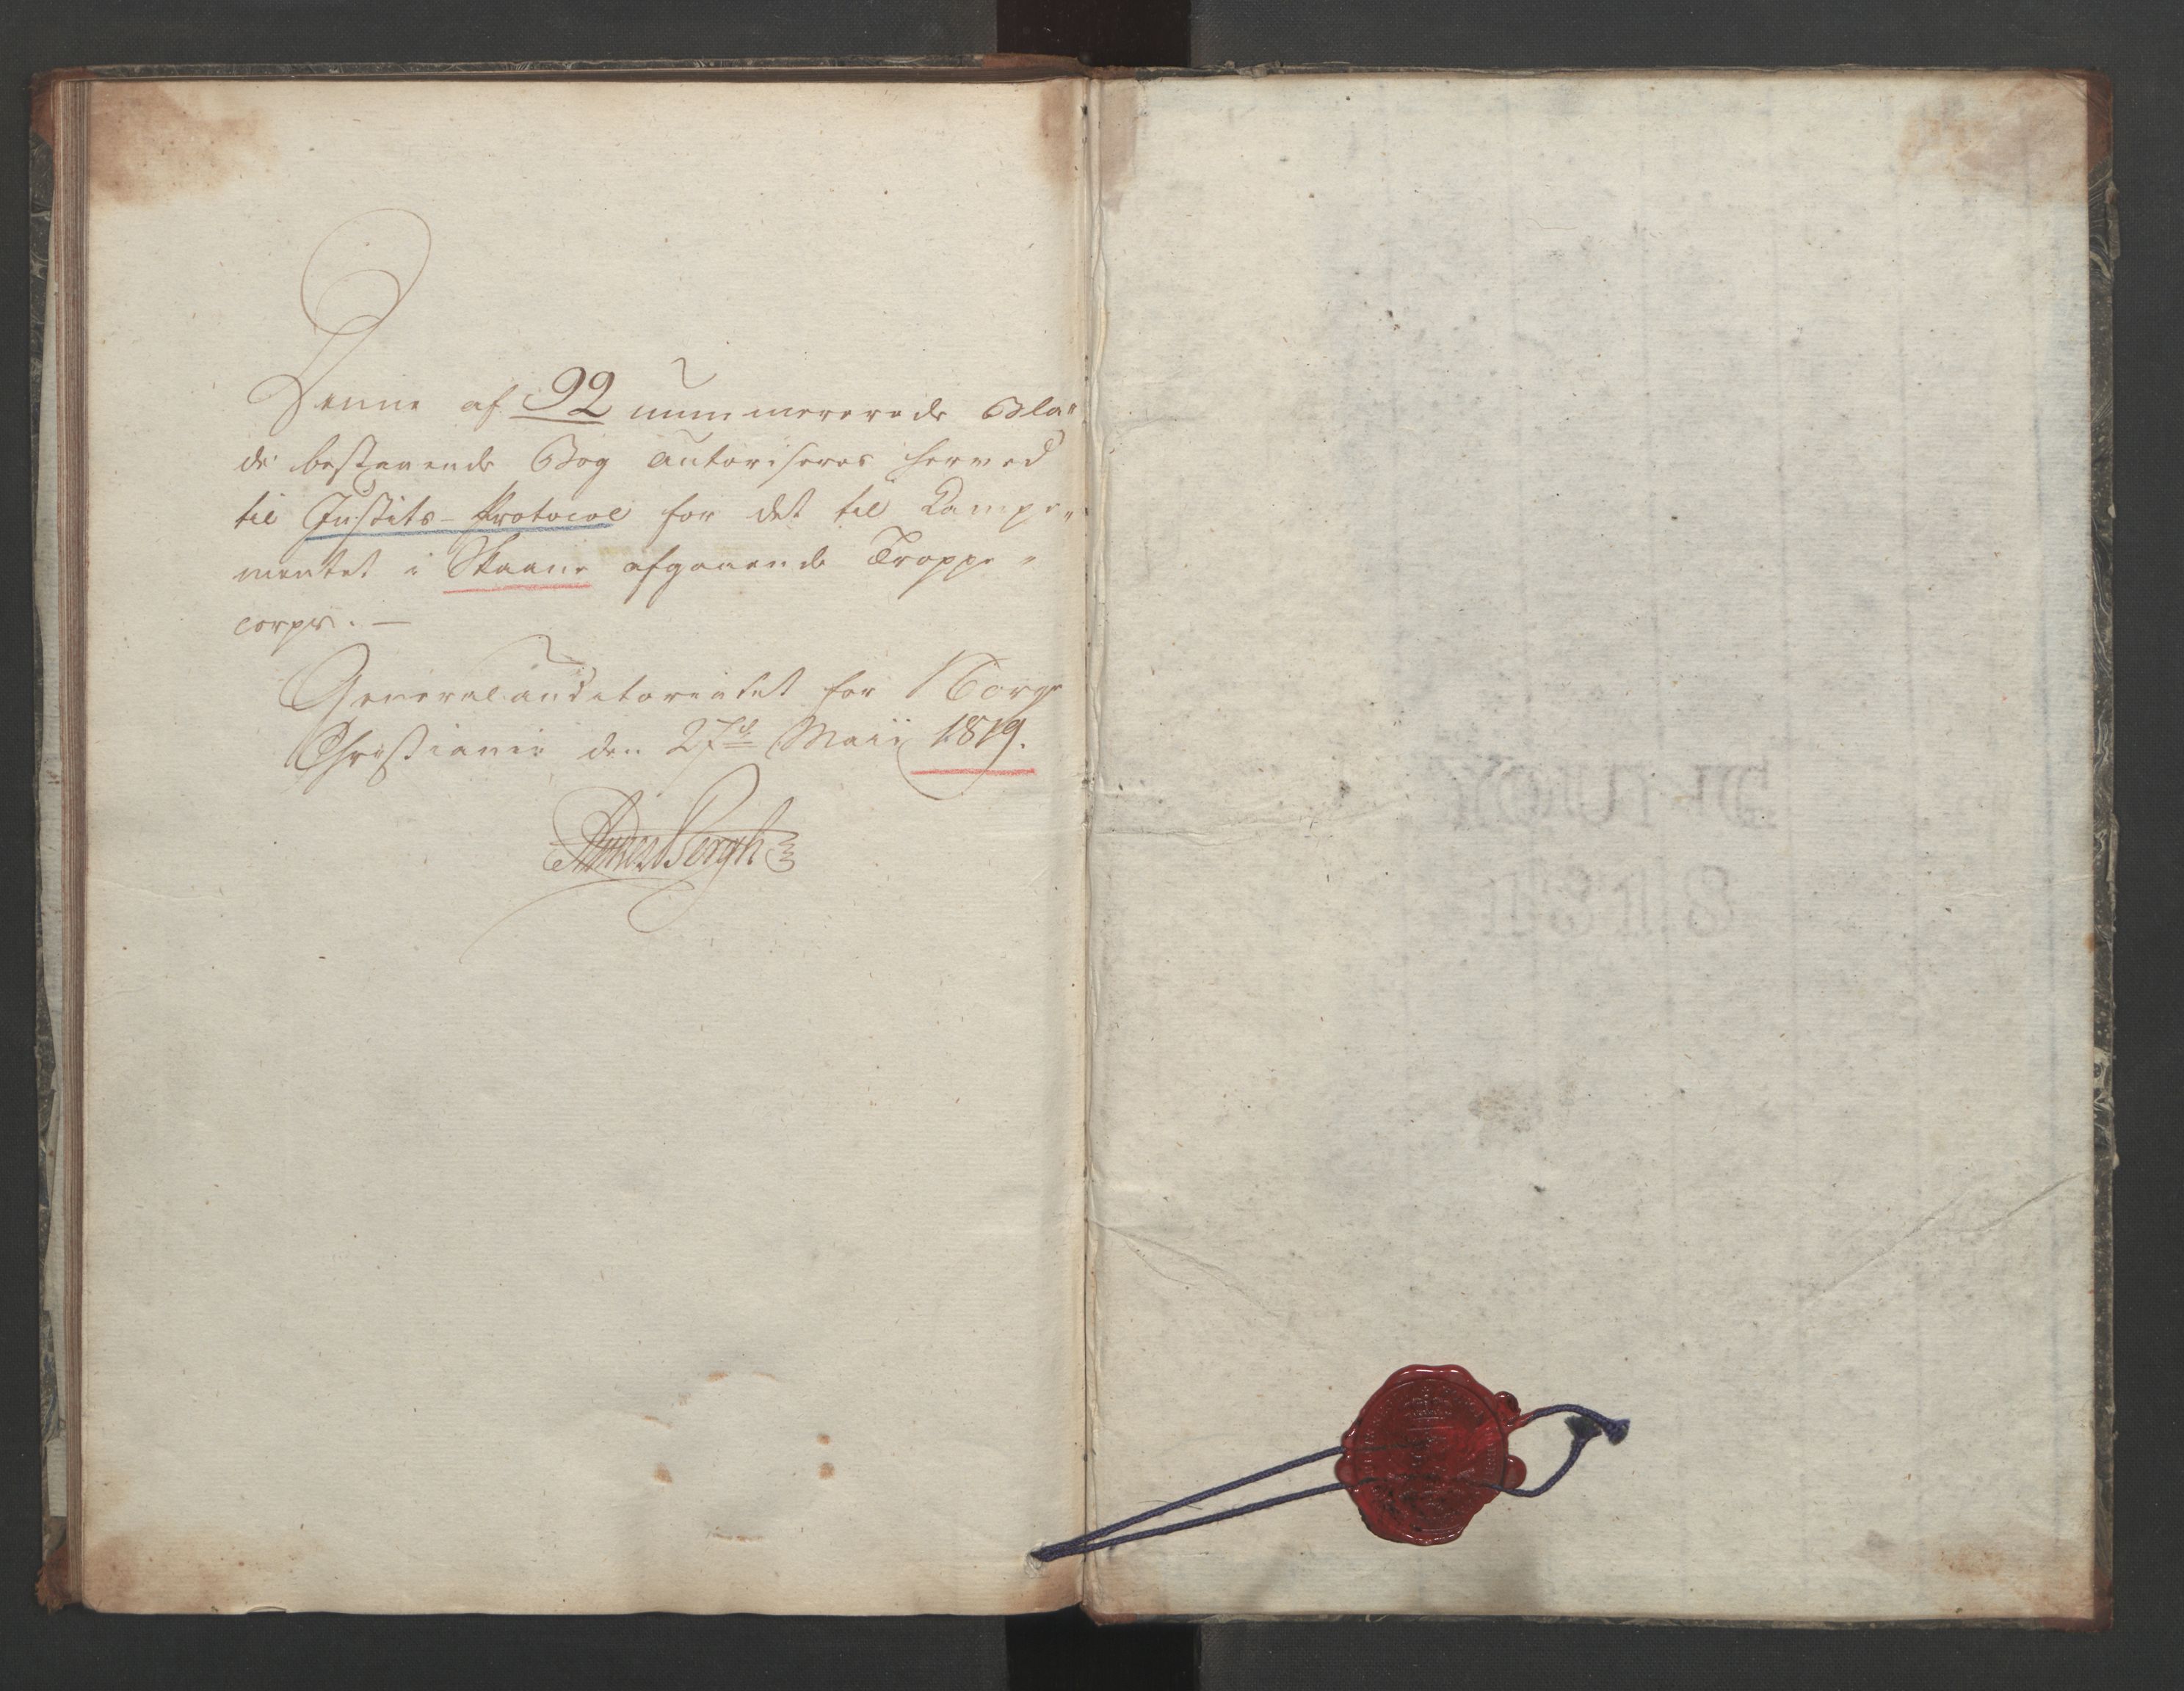 Denne af 92 nummererede Bla„
de bestaaende Bog autoriseres herved
til Justits-Protocol for det til Campe„
mentet i Skaane afgaaende Troppe„
corps. —
Generalauditoriatet for Norge
Christiania den 27d Maii 1819.
Bergh
1818